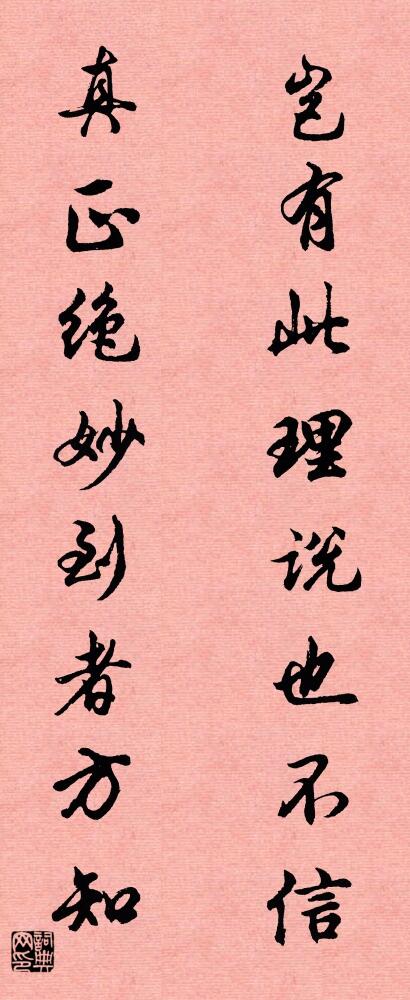 岂有此理说也不信
真正绝妙到者方知
詞典
网印